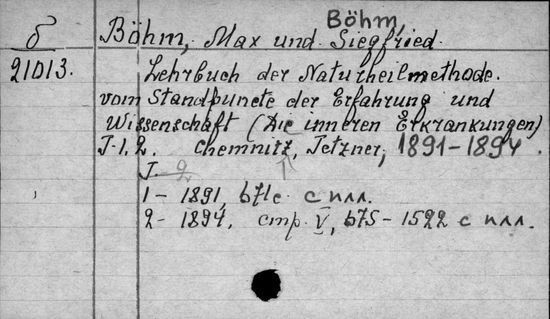 Böhm,
δ Böhm, Max und Siegfried.
21013. Lehrbuch der Naturheilmethode.
vom Standpuncte der Erfahrung und
Wissenschaft (Die inneren Erkrankungen)
T. 1, 2. Chemnitz, Tetzner, 1891-1894.
T. 2
1 - 1891, с илл.
2 - 1894, стр. V, 675-1522 с илл.